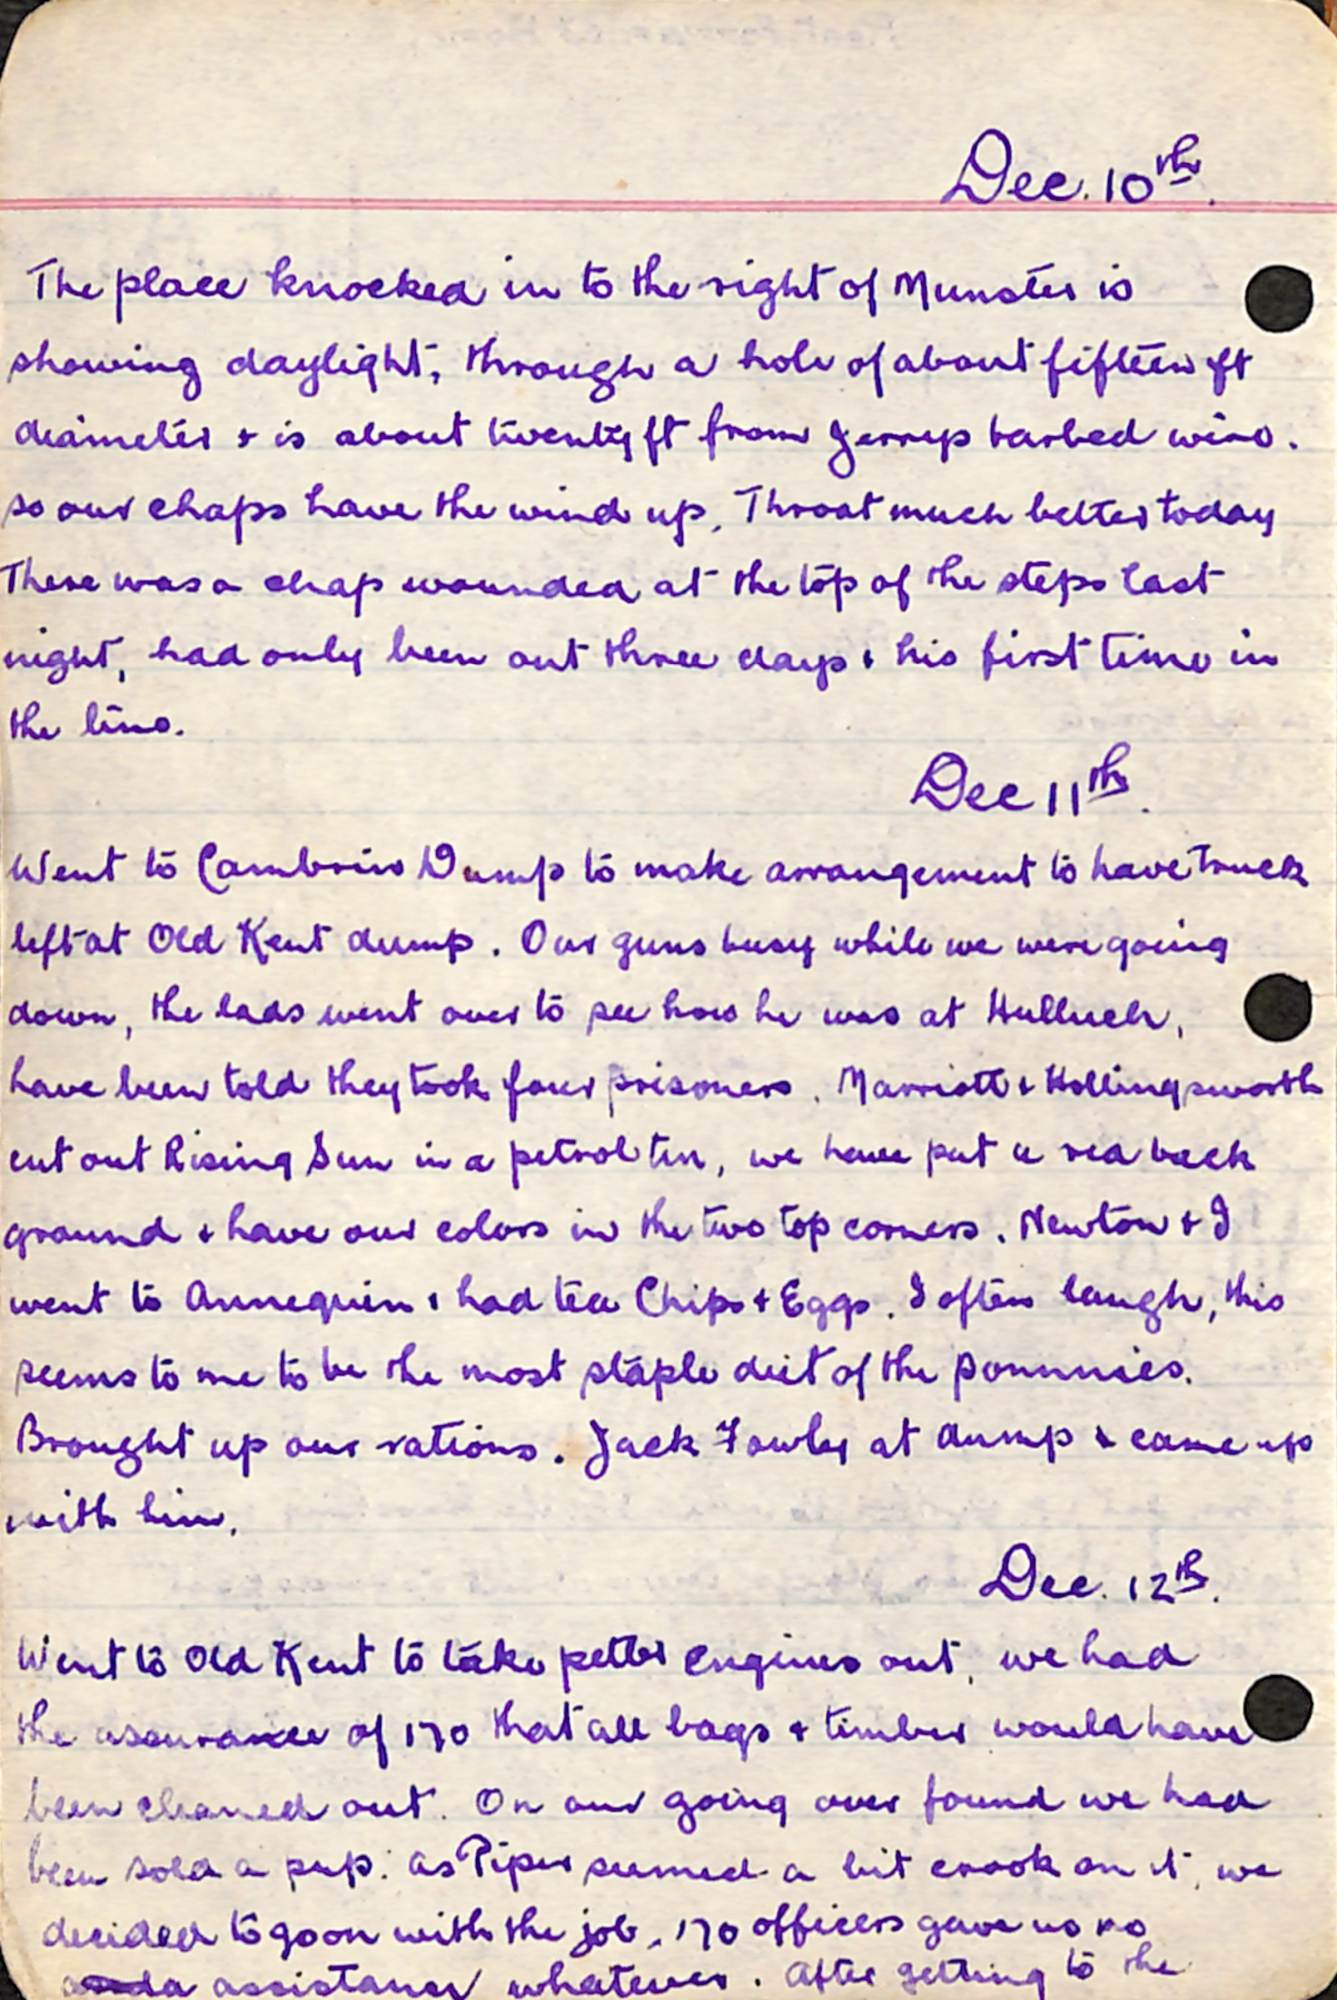 Dec. 10th.
The place knocked in to the right of Munster is
showing daylight, through a hole of about fifteen ft
diameter & is about twenty ft from Jerrys barbed wire.
so our chaps have the wind up. Throat much better today
There was a chap wounded at the top of the steps last
night, had only been out three days & his first time in
the line.
Dec 11th.
Went to Cambrin Dump to make arrangement to have truck
left at Old Kent dump. Our guns busy while we were going
down, the lads went over to see how he was at Hulluch,
have been told they took four prisoners. Marriott & Hollingsworth
cut out Rising Sun in a petrol tin, we have put a red back
ground & have our colors in the two top corners. Newton & I
went to Annequin & had tea Chips & Eggs. I often laugh, this
seems to me to be the most staple diet of the pommies.
Brought up our rations. Jack Fowley at dump & came up
with him.
Dec. 12th.
Went to Old Kent to take petter engines out, we had
the assurance of 170 that all bags & timber would have
been cleaned out. On our going over found we had
been sold a pup. as Piper seemed a bit crook on it, we
decided to go on with the job. 170 officers gave us no
assistance whatever. After getting to the